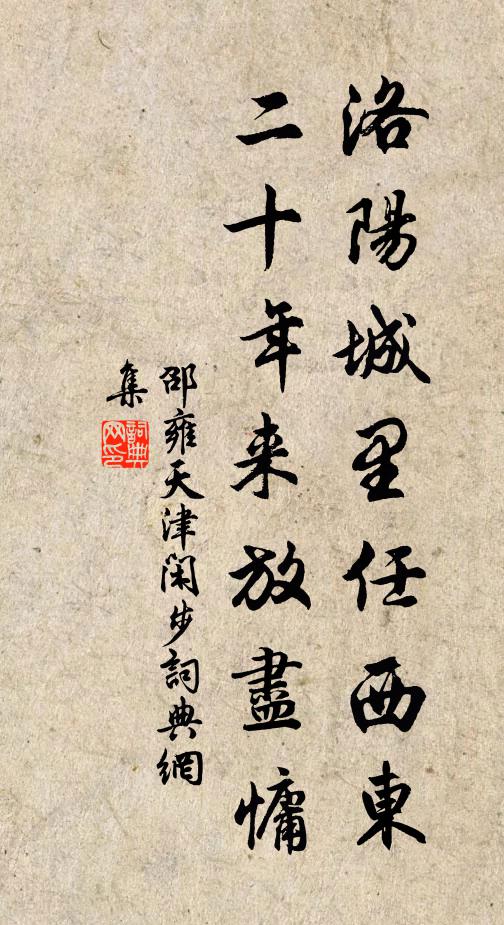 洛陽城里任西東
二十年来放盡慵
邵雍天津閑步詞典網
集
詞典
网印